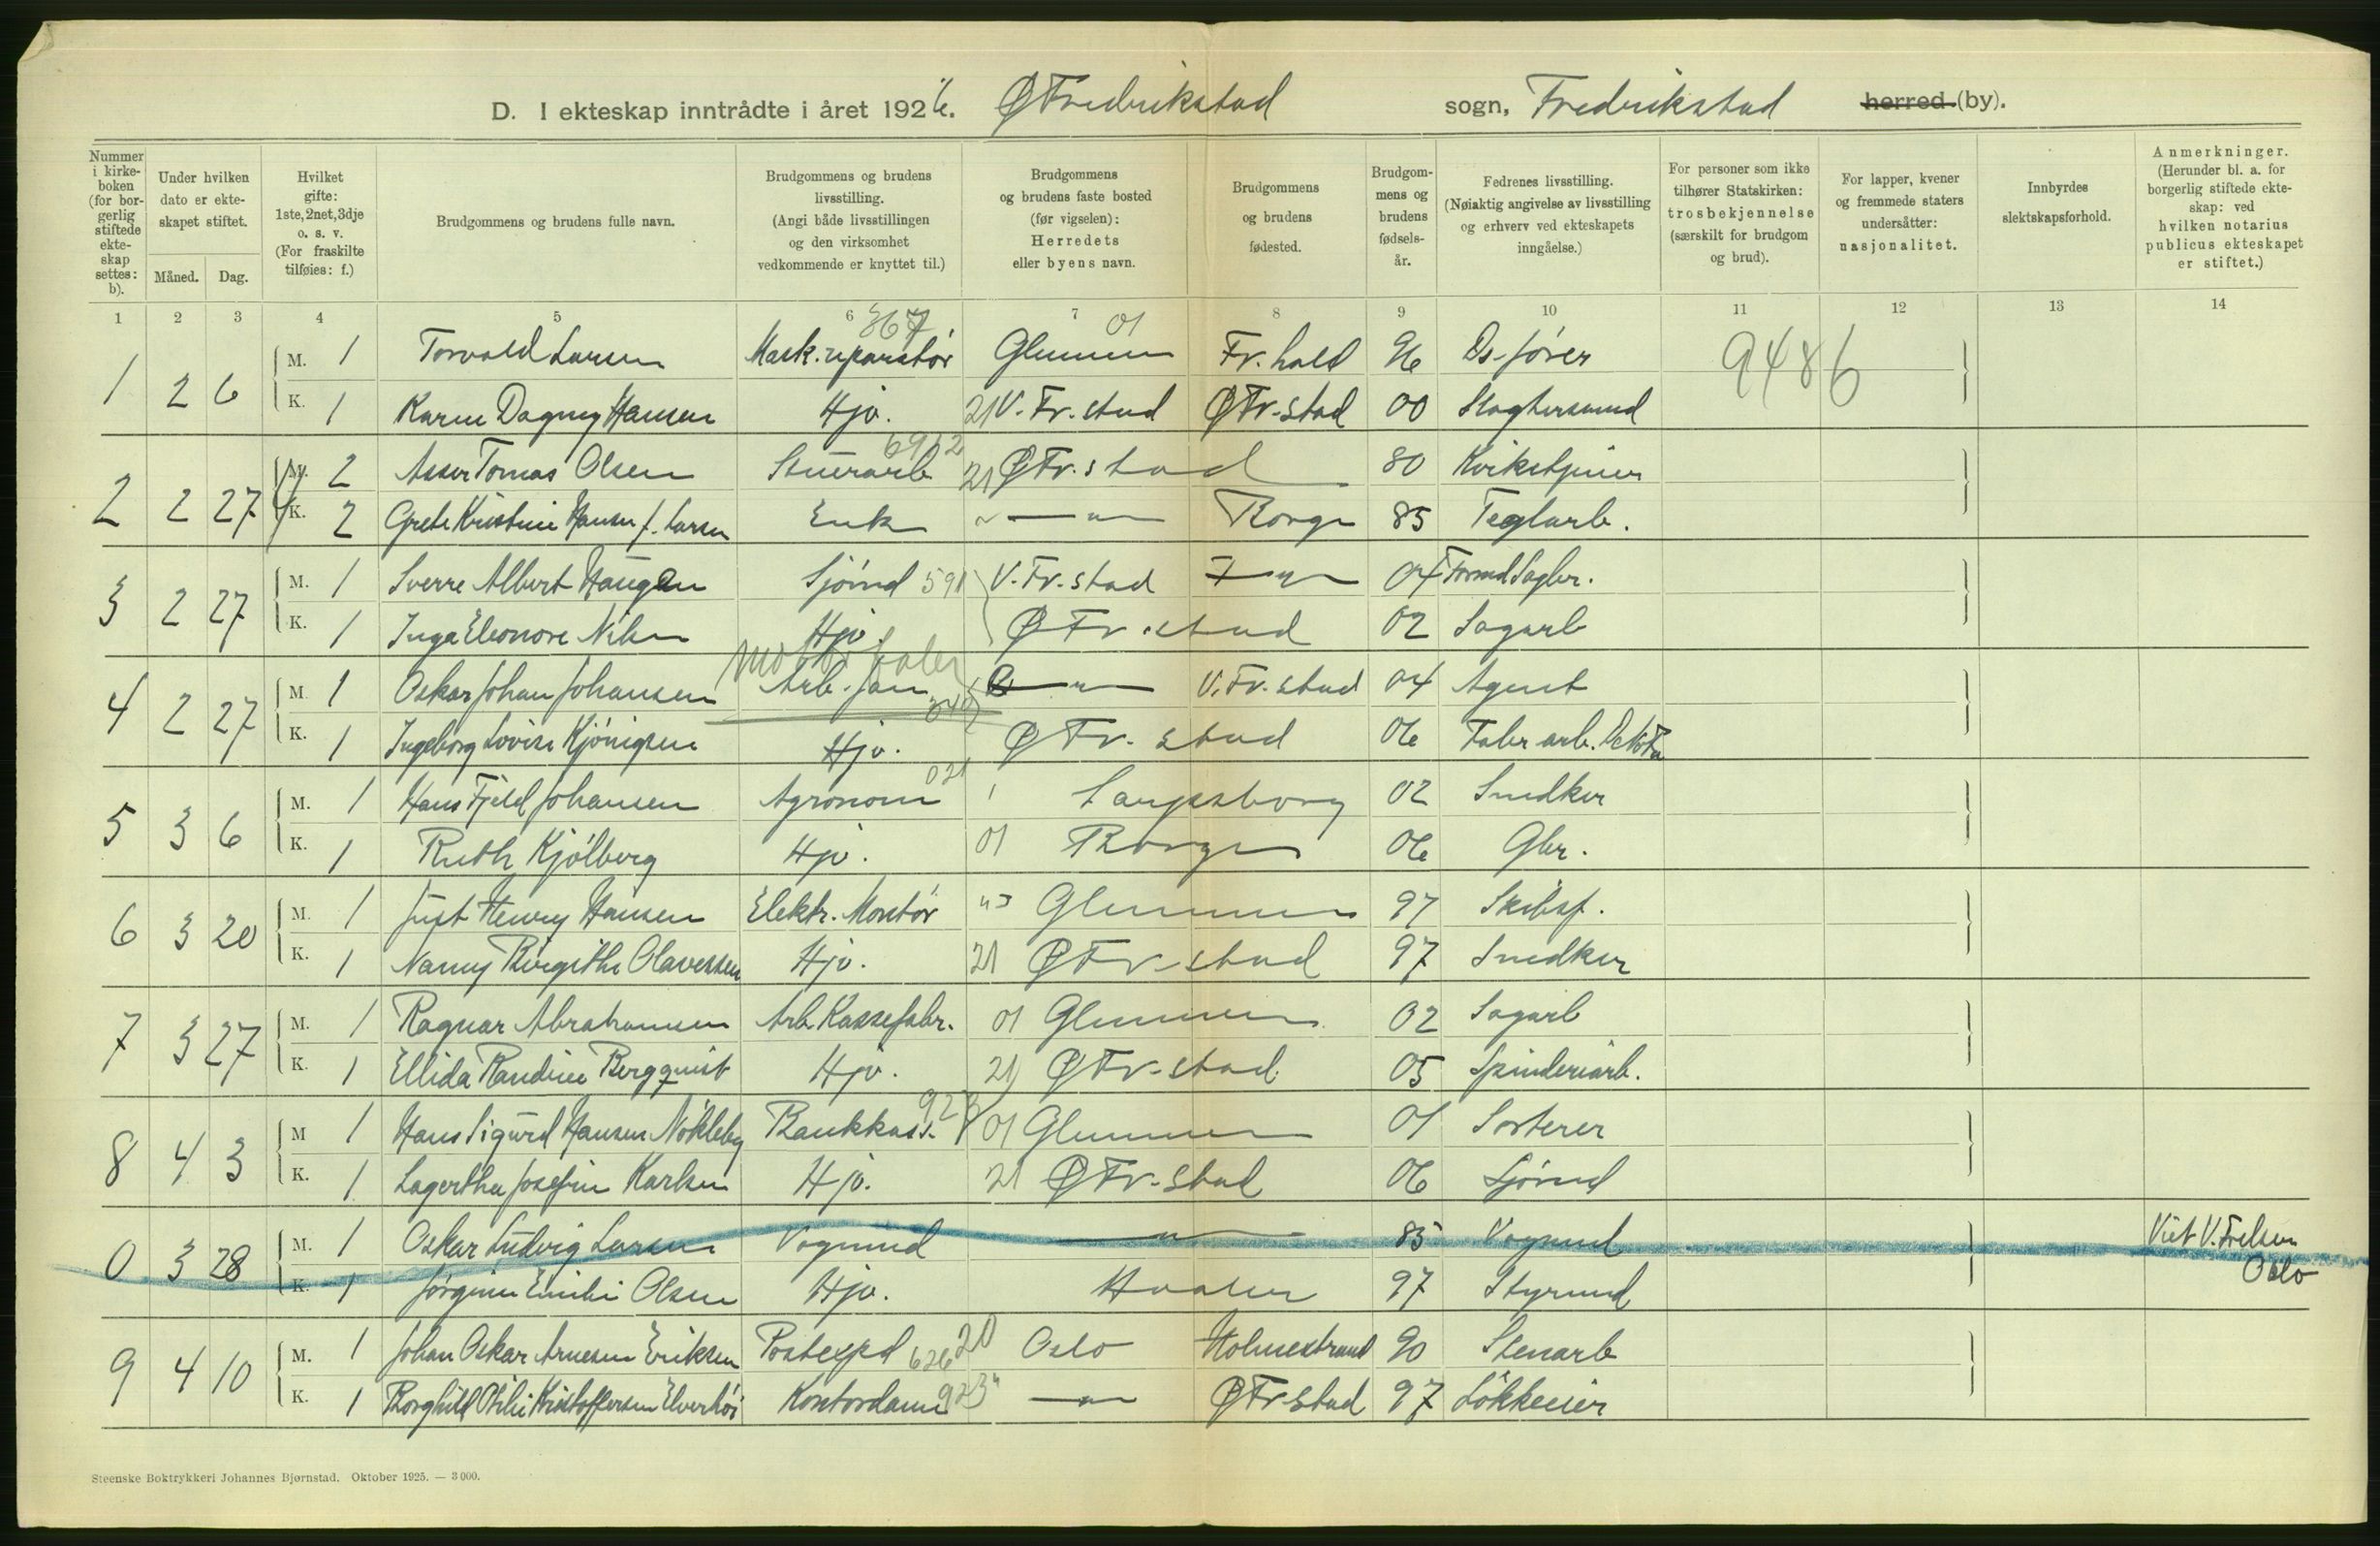 D. I ekteskap inntrådte i året 1926. ØFredrikstad sogn, Fredrikstad herred (by).
Nummer i kirkeboken (for borgerlig stiftede ekteskap settes: b).
Under hvilken dato er ekteskapet stiftet.
Måned. Dag.
Hvilket gifte: 1ste, 2net, 3dje o. s. v. (For fraskilte tilføies: f.)
Brudgommens og brudens fulle navn.
Brudgommens og brudens livsstilling. (Angi både livsstillingen og den virksomhet vedkommende er knyttet til.)
Brudgommens og brudens faste bosted (før vigselen): Herredets eller byens navn.
Brudgommens og brudens fødested.
Brudgommens og brudens fødselsår.
Fedrenes livsstilling. (Nøiaktig angivelse av livsstilling og erhverv ved ekteskapets inngåelse.)
For personer som ikke tilhører Statskirken: trosbekjennelse (særskilt for brudgom og brud).
For lapper, kvener og fremmede staters undersåtter: nasjonalitet.
Innbyrdes slektskapsforhold.
Anmerkninger. (Herunder bl. a. for borgerlig stiftede ekteskap: ved hvilken notarius publicus ekteskapet er stiftet.)
1 2 3 4 5 6 7 8 9 10 11 12 13 14
367 01
1 2 6 M. 1 Torvald Larsen Mask. reparatør Glemmen Fr. hald 96 Ds-fører 9486
K. 1 Karen Dagny Hansen Hjv. 21 V. Fr. stad ØFr-stad 00 Slagtersvend
6912
2 2 27 M. 2 Asser Tomas Olsen Stuerarb 21 ØFr. stad 80
K. 2 Grete Kristine Hansen f. Larsen Enk — " — Borge 85 Teglarb.
3 2 27 M. 1 Sverre Albert Haugen Sjømd 591 V. Fr. stad — " — 04 Formd Sagbr.
K. 1 Inga Eleonore Nilsen Hjv. ØFr. stad 02 Sagarb
4 2 27 M. 1 Oskar Johan Johansen Arb. — " — V. Fr. stad 04 Agent
K. 1 Ingeborg Lovise Kjönigsen Hjv. ØFr. stad 06 Fabr arb. De No Fa
021
5 3 6 M. 1 Hans Fjeld Johansen Agronom Sarpsborg 02 Snedker
K. 1 Ruth Kjølberg Hjv. 01 Borge 06 Gbr.
6 3 20 M. 1 Just Henry Hansen Elektr. Montør Glemmen 97 Skibsf.
K. 1 Nanny Birgithe Olavessen Hjv. 21 ØFr-stad 97 Snedker
7 3 27 M. 1 Ragnar Abrahamsen Arb. Kassefabr. 01 Glemmen 02 Sagarb
K. 1 Ellida Randine Bergquist Hjv. 21 ØFr-stad 05 Spinderiarb.
923
8 4 3 M 1 Hans Sigurd Hansen Nökleby Bankkass. 01 Glemmen 01 Sorterer
K. 1 Lagertha Josefine Karlsen Hjv. 21 ØFr-stad 06 Sjømd
0 3 28 M. 1 Oskar Ludvig Larsen Vognmd — " — 85 Vognmd Viet V. Frelsers
K. 1 Jørgine Emilie Olsen Hjv. Hvaler 97 Styrmd Oslo
9 4 10 M. 1 Johan Oskar Arnesen Eriksen Postexpd 626 20 Oslo Holmestrand 90 Stenarb
K. 1 Borghild Otilie Kristoffersen Elverhöi Kontordame 923 — " — ØFr stad 97 Lökkeeier
Steenske Boktrykkeri Johannes Bjørnstad. Oktober 1925. — 3 000.